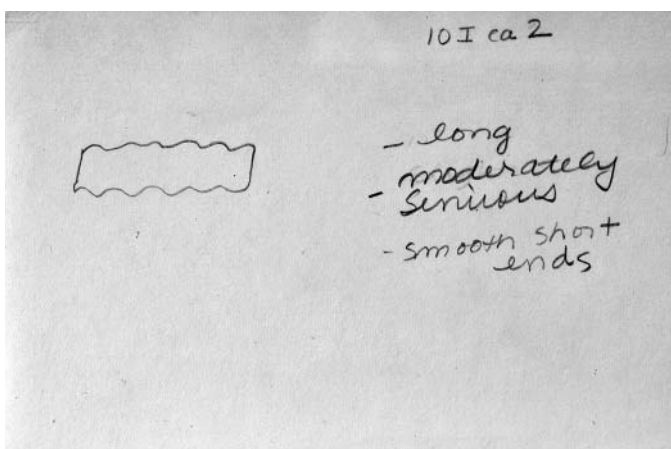 10 I ca 2
- long
- moderately
sinuous
- smooth short
ends